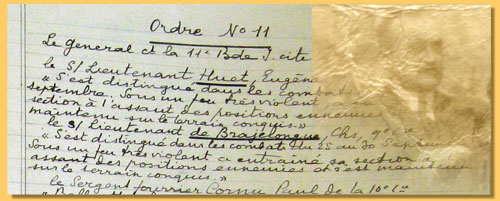 Ordre No 11
Le general ct la 11e Bde I. cite
le S/ Lieutenant Huet, Eugèn
"S'est distingué dans les combats
septembre. Sous un feu très violent, a en
section à l'assaut des positions ennemies
maintenu sur le terrain conquis."
le S/ Lieutenant de Brajelongne, Chs,
"S'est distingué dans les combats du 25 au 30 Sept
Sous un feu très violent a entrainé sa section à
assaut des positions ennemies et s'est maintenu
sur le terrain conquis."
le Sergent fourrier Cornu Paul de la 10e Cie